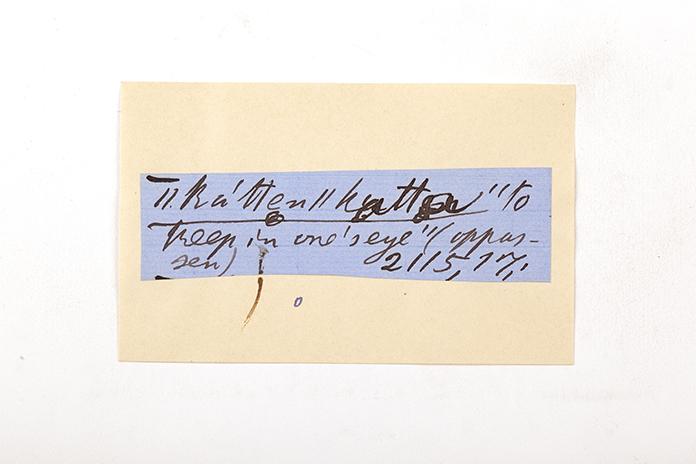 ǁká'ttenǁkatten "to
keep in one's eye" (oppas-
sen) 2115, 17,
o